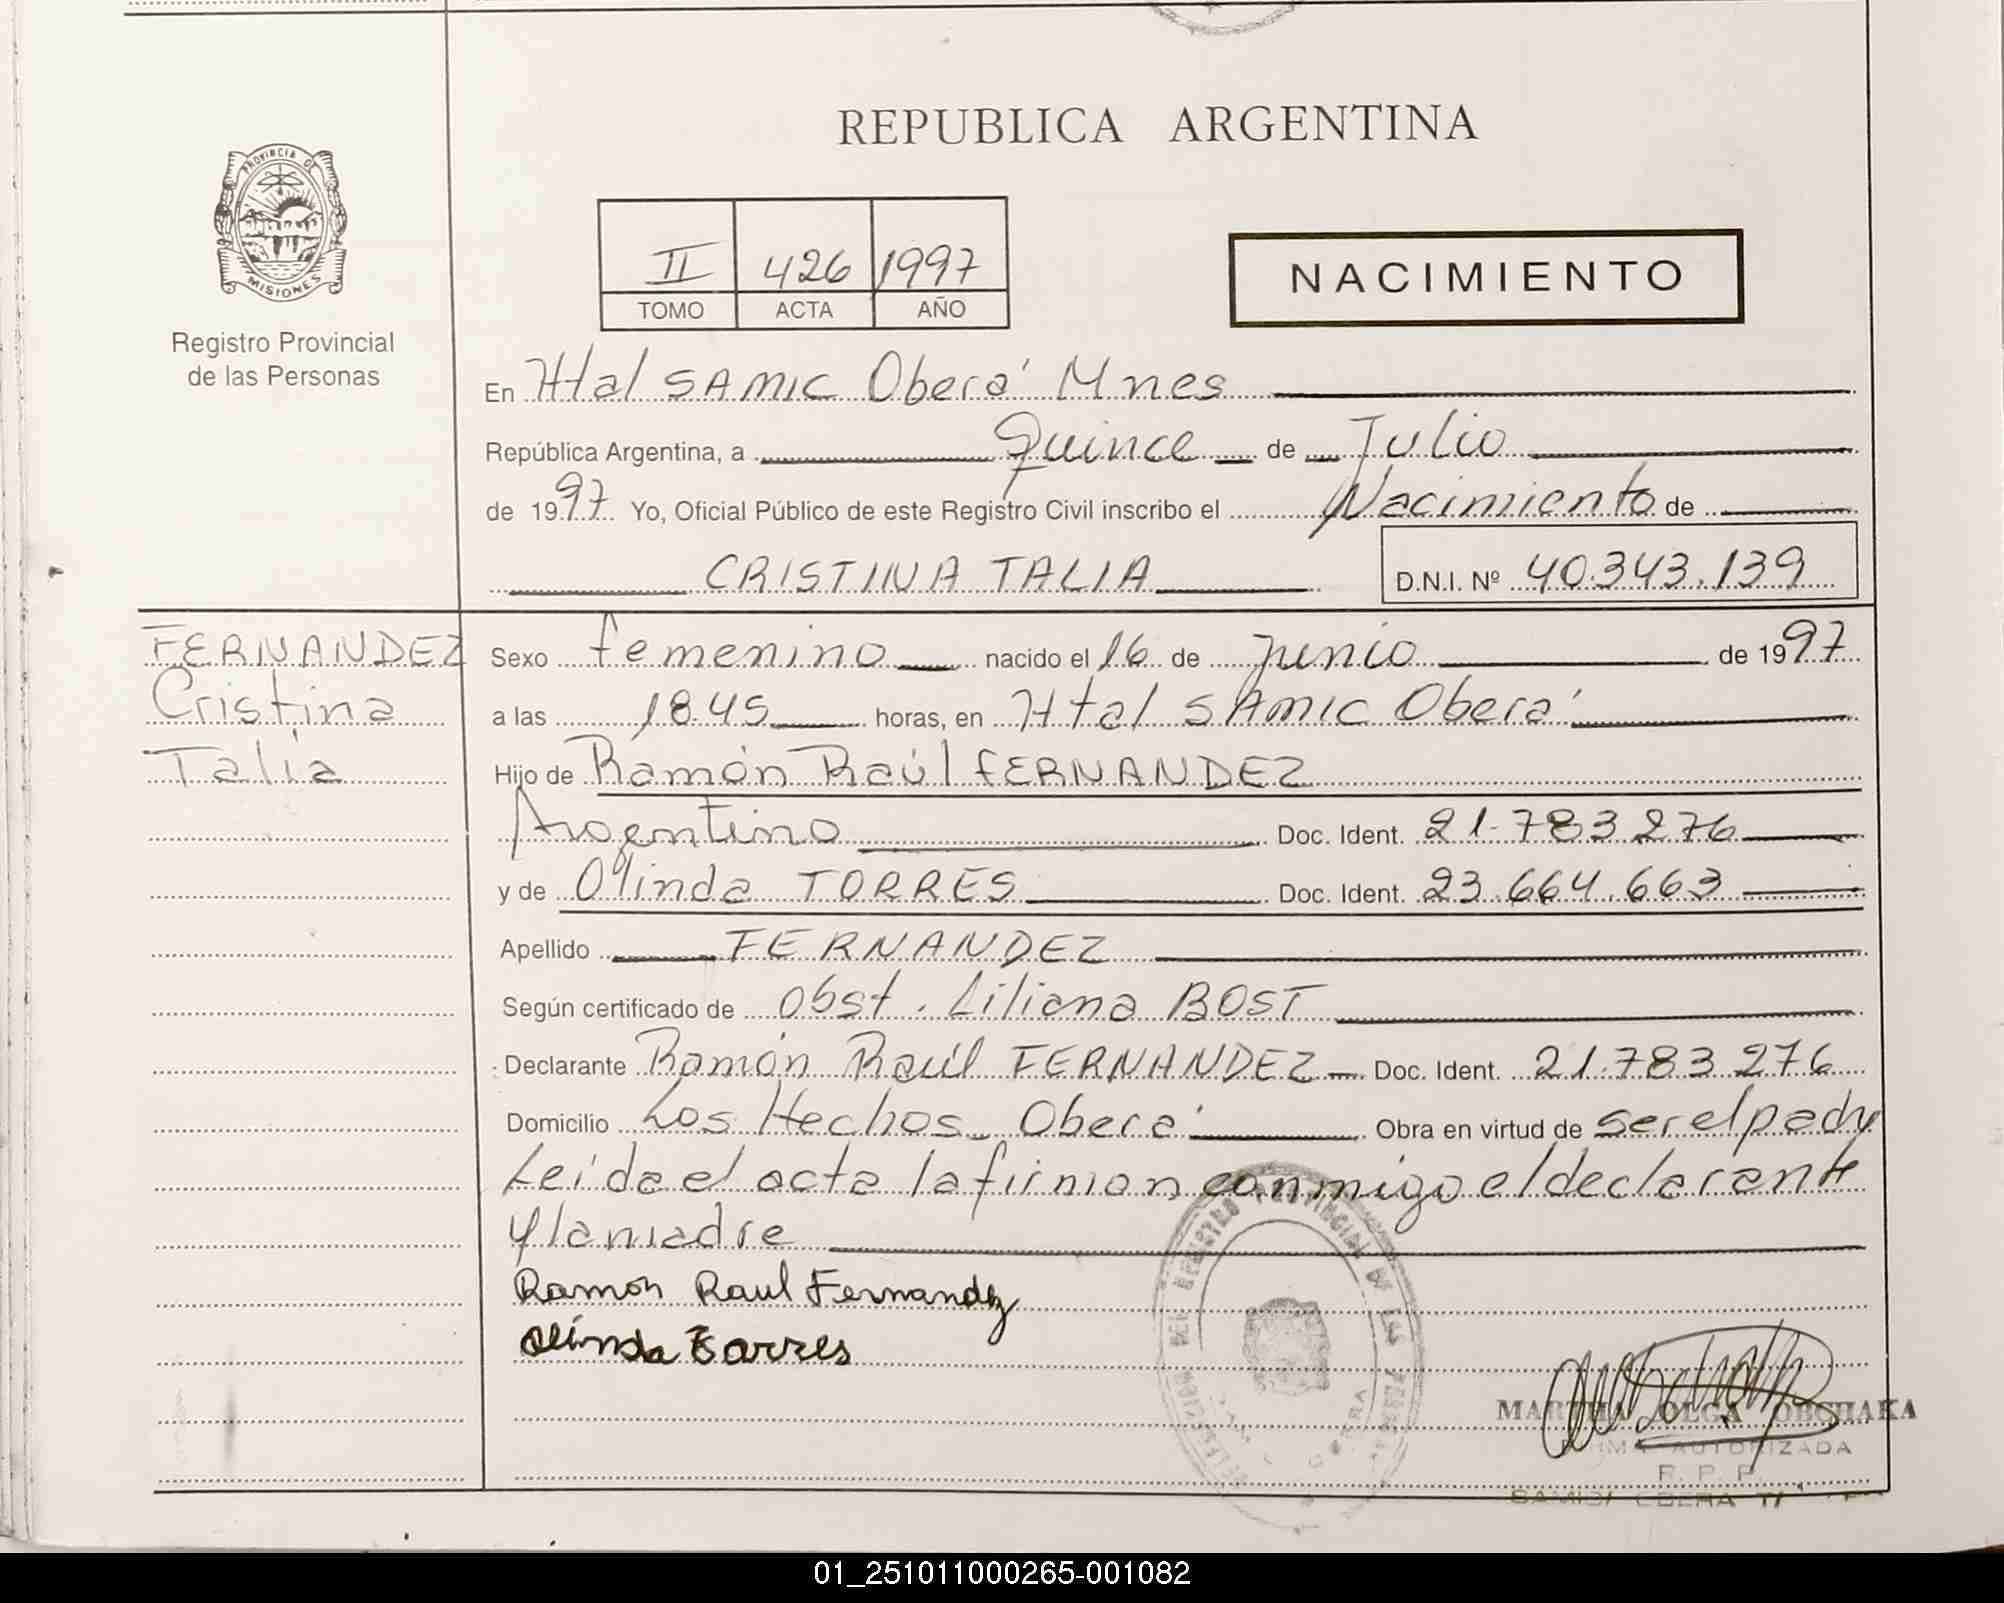 REPUBLICA ARGENTINA
PROVINCIA DE
MISIONES
Registro Provincial
de las Personas
II 426 1997
TOMO ACTA AÑO
NACIMIENTO
En Htal SAMIC Oberá Mnes
República Argentina, a Quince de Julio
de 1997 Yo, Oficial Público de este Registro Civil inscribo el Nacimiento de
CRISTINA TALIA D.N.I. Nº 40.343.139
FERNANDEZ
Cristina
Talia
Sexo femenino nacido el 16 de junio de 1997
a las 18.45 horas, en Htal SAMIC Oberá
Hijo de Ramón Raúl FERNANDEZ
Argentino Doc. Ident. 21.783.276
y de Olinda TORRES Doc. Ident. 23.664.663
Apellido FERNANDEZ
Según certificado de obst. Liliana BOST
Declarante Ramón Raúl FERNANDEZ Doc. Ident. 21.783.276
Domicilio Los Hechos Oberá Obra en virtud de ser el padre
Leida el acta la firman conmigo el declarante
y la madre
Ramón Raul Fernandez
Olinda Torres
REGISTRO PROVINCIAL DE LAS
MARTHA OLGA OBCHAKA
AUTORIZADA
R. P. P.
01_251011000265-001082